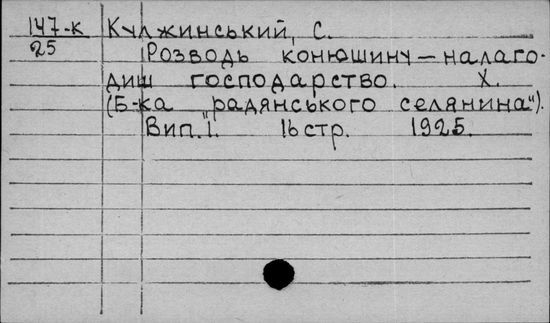 147-к Кулжинський, С.
25 Розводь конюшину — налаго-
диш господарство. Х.
(Б-ка "радянського селянина").
Вип. 1. 16 стр. 1925.